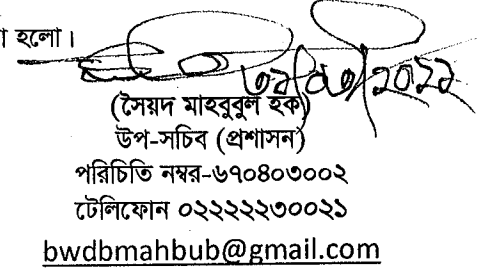 হলো।
(সৈয়দ মাহবুবুল হক)
উপ-সচিব (প্রশাসন)
পরিচিতি নম্বর-৬৭০৪০৩০০২
টেলিফোন ০২২২২২৩০০২১
bwdbmahbub@gmail.com